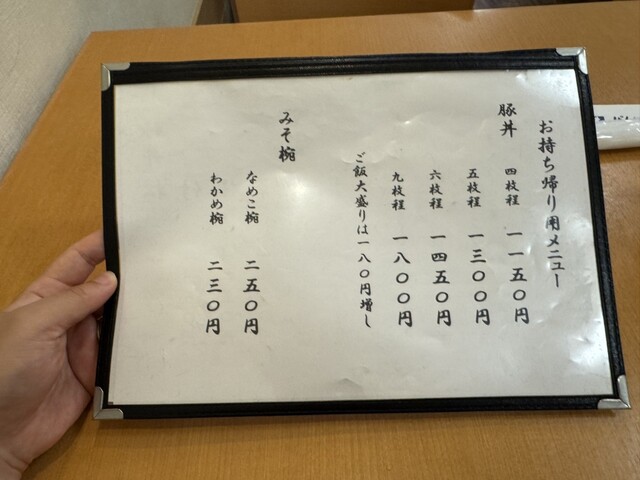 お持ち帰り用メニュー
豚丼
四枚程 一一五〇円
五枚程 一三〇〇円
六枚程 一四五〇円
九枚程 一八〇〇円
ご飯大盛りは一八〇円増し
みそ椀
なめこ椀 二五〇円
わかめ椀 二三〇円